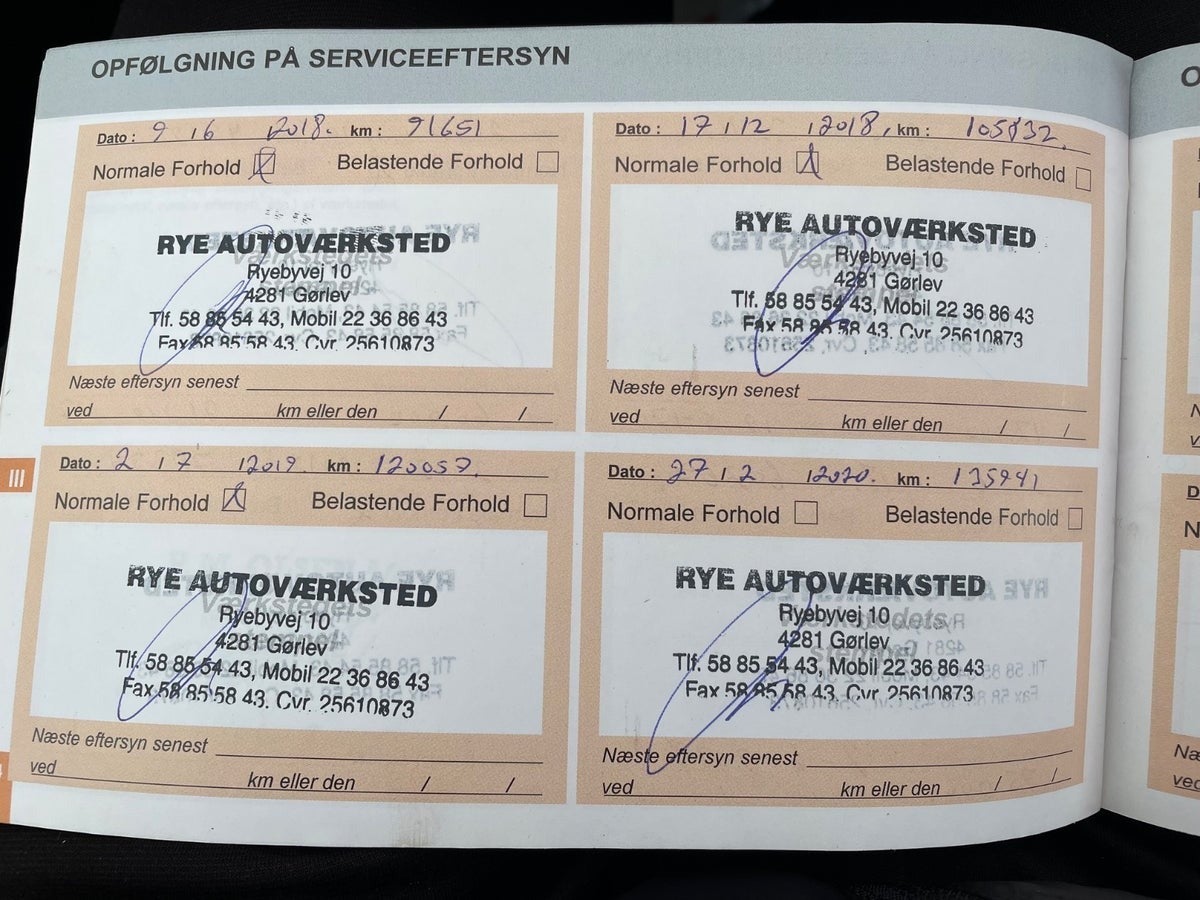 OPFØLGNING PÅ SERVICEEFTERSYN
Dato : 9 / 6 2018. km : 91651
Normale Forhold Belastende Forhold
RYE AUTOVÆRKSTED
Værkstedets
Ryebyvej 10
stempel
4281 Gørlev
Tlf. 58 85 54 43, Mobil 22 36 86 43
Fax 58 85 58 43. Cvr. 25610873
Næste eftersyn senest
ved km eller den / /
Dato : 17 / 12 / 2018, km :
Normale Forhold Belastende Forhold
RYE AUTOVÆRKSTED
Værkstedets
Ryebyvej 10
stempel
4281 Gørlev
Tlf. 58 85 54 43, Mobil 22 36 86 43
Fax 58 85 58 43. Cvr. 25610873
Næste eftersyn senest
ved km eller den / /
III
Dato : 2 / 7 / 2019. km : 120057.
Normale Forhold Belastende Forhold
RYE AUTOVÆRKSTED
Værkstedets
Ryebyvej 10
stempel
4281 Gørlev
Tlf. 58 85 54 43, Mobil 22 36 86 43
Fax 58 85 58 43. Cvr. 25610873
Næste eftersyn senest
ved km eller den / /
Dato : 27 / 2 / 2020. km : 135941
Normale Forhold Belastende Forhold
RYE AUTOVÆRKSTED
Værkstedets
Ryebyvej 10
stempel
4281 Gørlev
Tlf. 58 85 54 43, Mobil 22 36 86 43
Fax 58 85 58 43. Cvr. 25610873
Næste eftersyn senest
ved km eller den / /